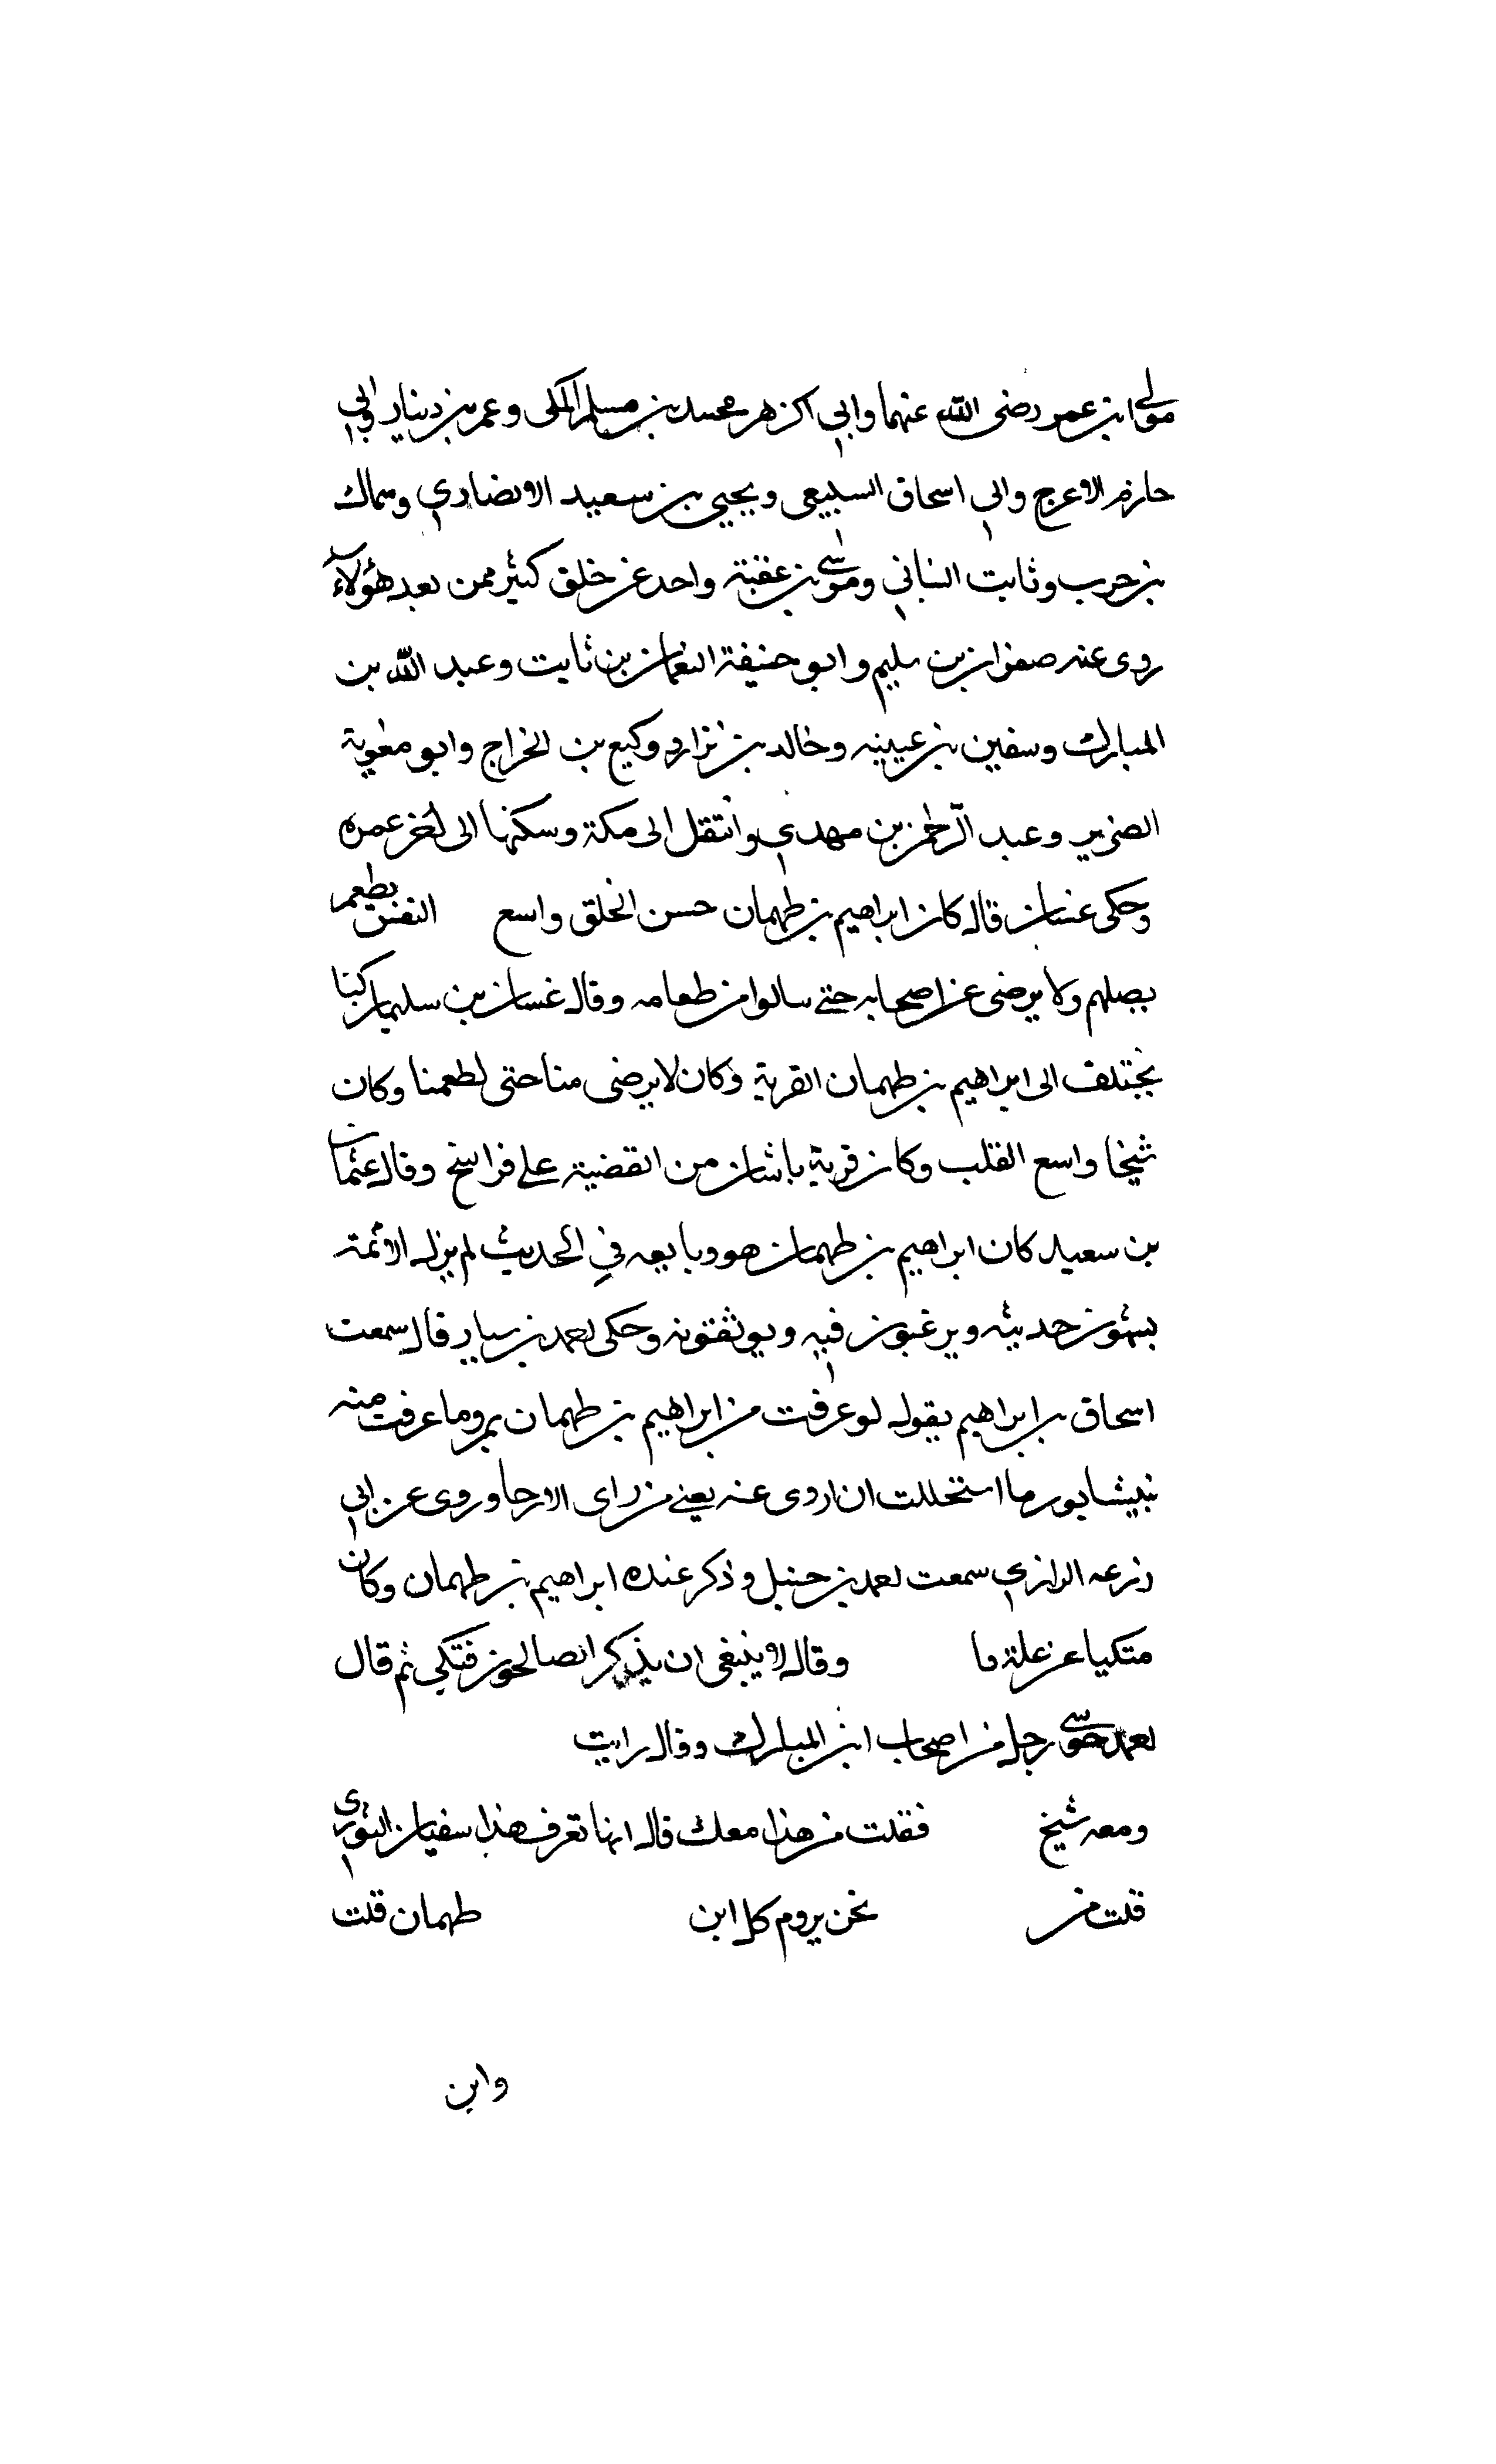 مولى ابن عمر رضى الله عنهما وابي الزهر محمد بن مسلم المكى وعمر بن دينار وابي
حازم الاعرج وابي اسحاق السبيعى ويحيى بن سعيد الانصارى وسماك
بن حرب وثابت البنانى وموسى بن عقبة واحد عن خلق كثير ممن بعد هؤلاء
روى عنه صفوان بن سليم وابو حنيفة النعمان بن ثابت وعبد الله بن
المبارك وسفين بن عيينه وخالد بن نزار ووكيع بن الجراح وابو معوية
الضرير وعبد الرحمن بن مهدى وانتقل الى مكة وسكنها الى اخر عمره
وحكى غسان قال كان ابراهيم بن طهمان حسن الخلق واسع النفس يطعم
يصلهم ولا يرضى عن اصحابه حتى سالوا من طعامه وقال غسان بن سليمان كنا
نختلف الى ابراهيم بن طهمان القرية وكان لا يرضى منا حتى لطعمنا وكان
شيخا واسع القلب وكان قرية باشان من القضية على فراسخ وقال عثمان
بن سعيد كان ابراهيم بن طهمان هو وبايعه في الحديث لم يزل الائمة
يشهون حديثه ويرغبون فيه ويوثقونه وحكى احمد بن سيار قال سمعت
اسحاق بن ابراهيم يقول لو عرفت من ابراهيم بن طهمان بمرو ما عرفت منه
نبيشابور ما استحللت ان اروى عنه يعنى من راى الارجا وروى عن ابي
زرعه الرازى سمعت احمد بن حنبل وذكر عنده ابراهيم بن طهمان وكان
متكيا عن علة ما وقال لا ينبغى ان يذكر الصالحون فتتكى ثم قال
احمد رجل من اصحاب ابن المبارك وقال رايت
ومعه شيخ فقلت من هذا معك قال انها تعرف هذا سفيان الثورى
قلت من نحن يروم كل ابن طهمان قلت
وابن